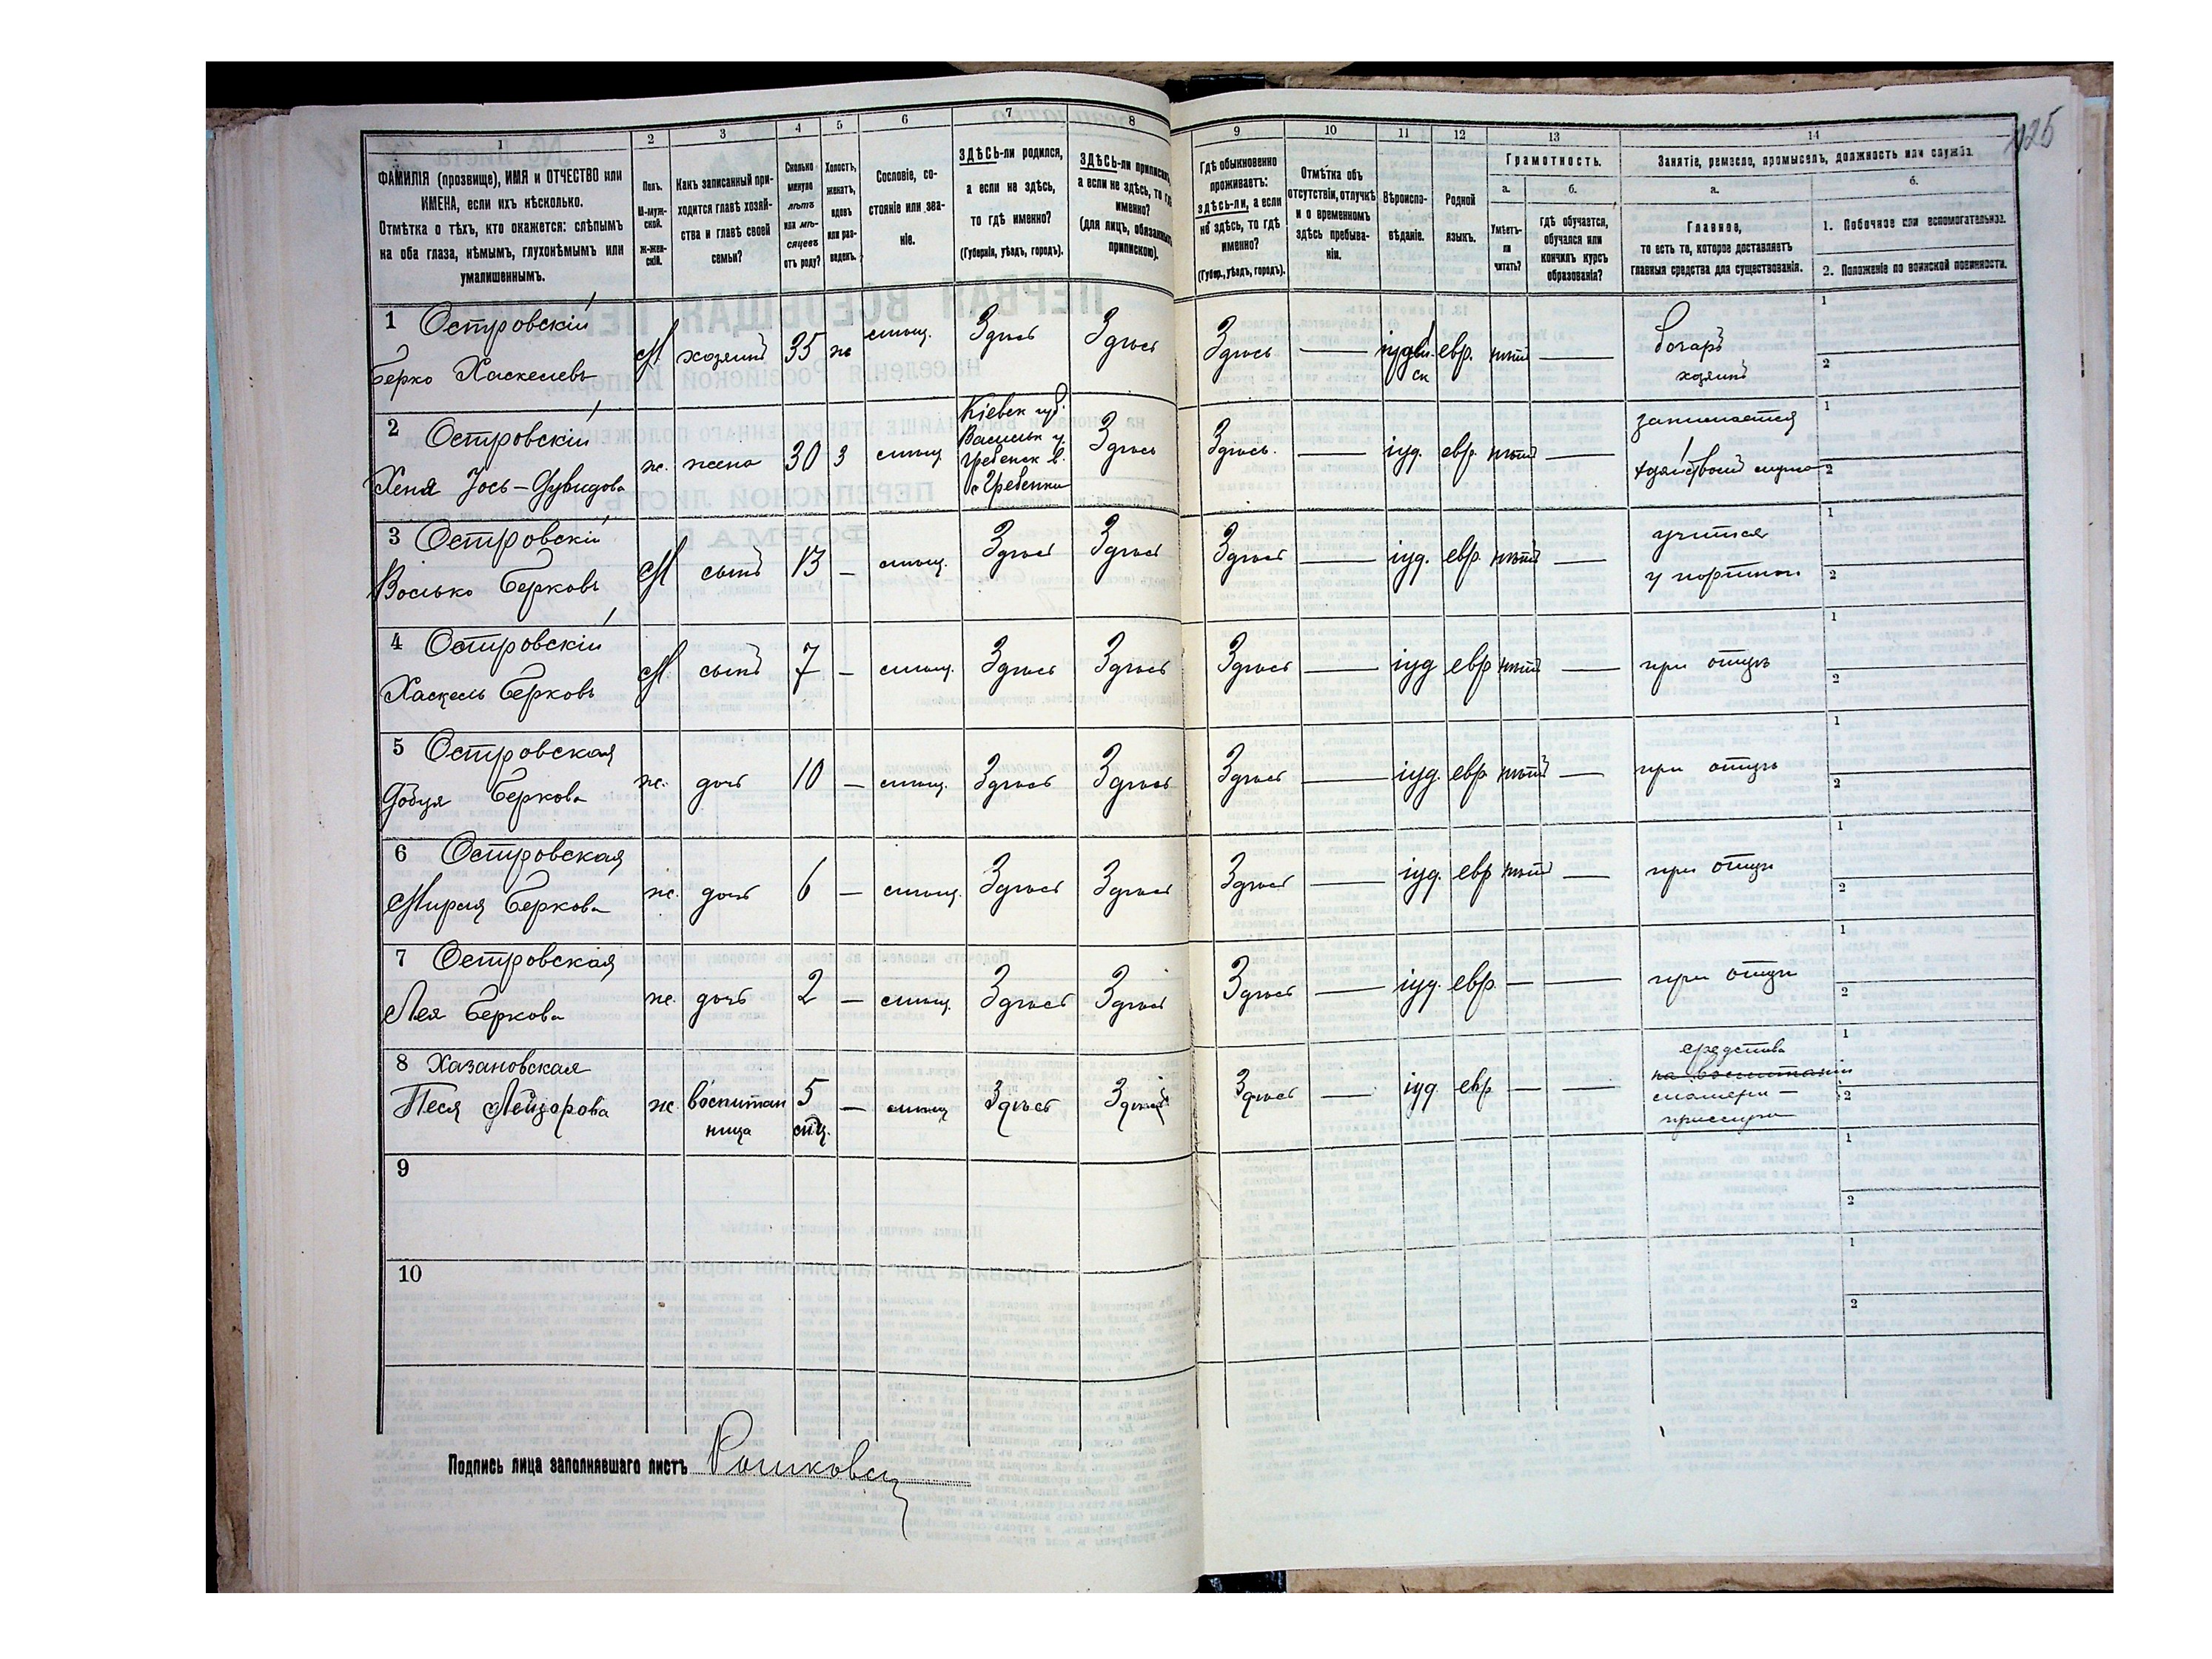 125
1 2 3 4 5 6 7 8 9 10 11 12 13 14
ФАМИЛІЯ (прозвище), ИМЯ и ОТЧЕСТВО или
ИМЕНА, если ихъ нѣсколько.
Отмѣтка о тѣхъ, кто окажется: слѣпымъ
на оба глаза, нѣмымъ, глухонѣмымъ или
умалишеннымъ.
Полъ.
М-муж-
ской.
Ж-жен-
скій.
Какъ записанный при-
ходится главѣ хозяй-
ства и главѣ своей
семьи?
Сколько
минуло
лѣтъ
или мѣ-
сяцевъ
отъ роду?
Холостъ,
женатъ,
вдовъ
или раз-
веденъ.
Сословіе, со-
стояніе или зва-
ніе.
ЗДѢСЬ-ли родился,
а если не здѣсь,
то гдѣ именно?
(Губернія, уѣздъ, городъ).
ЗДѢСЬ-ли приписанъ,
а если не здѣсь, то гдѣ
именно?
(для лицъ, обязанныхъ
припискою).
Гдѣ обыкновенно
проживаетъ:
здѣсь-ли, а если
не здѣсь, то гдѣ
именно?
(Губер., уѣздъ, городъ).
Отмѣтка объ
отсутствіи, отлучкѣ
и о временномъ
здѣсь пребыва-
ніи.
Вѣроиспо-
вѣданіе.
Родной
языкъ.
Грамотность.
а. б.
Умѣетъ-
ли
читать?
гдѣ обучается,
обучался или
кончилъ курсъ
образованія?
Занятіе, ремесло, промыселъ, должность или служба.
а. б.
Главное,
то есть то, которое доставляетъ
главныя средства для существованія.
1. Побочное или вспомогательное.
2. Положеніе по воинской повинности.
1 Островскій
Берко Хаскелевъ
М. хозяинъ 35 ж мѣщ. Здѣсь Здѣсь Здѣсь — іудейск евр. нѣтъ —
бочаръ
хозяинъ
1
2
2 Островскій
Хеня Іось-Дувидова
ж. жена 30 з мѣщ
Кіевск губ.
Васильк у.
Гребенск в.
с Гребенки
Здѣсь Здѣсь. — іуд. евр. нѣтъ —
занимается
1
2
3 Островскій
Воського Берковъ
М сынъ 13 — мѣщ. Здѣсь Здѣсь Здѣсь — іуд. евр. нѣтъ —
учится
у портного
1
2
4 Островскій
Хаскель Берковъ
М. сынъ 7 — мѣщ. Здѣсь Здѣсь Здѣсь — іуд евр нѣтъ — при отцѣ
1
2
5 Островская
Добця Беркова
ж. дочь 10 — мѣщ. Здѣсь Здѣсь Здѣсь — іуд. евр нѣтъ — при отцѣ
1
2
6 Островская
Мирля Беркова
ж. дочь 6 — мѣщ. Здѣсь Здѣсь Здѣсь — іуд. евр нѣтъ — при отцѣ
1
2
7 Островская
Лея Беркова
ж. дочь 2 — мѣщ. Здѣсь Здѣсь Здѣсь — іуд. евр. — — при отцѣ
1
2
8 Хазановская
Песя Лейзорова
ж. воспитан
ница
5 — мѣщ Здѣсь Здѣсь Здѣсь — іуд. евр — —
средства
на воспитаніи
1
2
9
1
2
10
1
2
Подпись лица заполнявшаго листъ